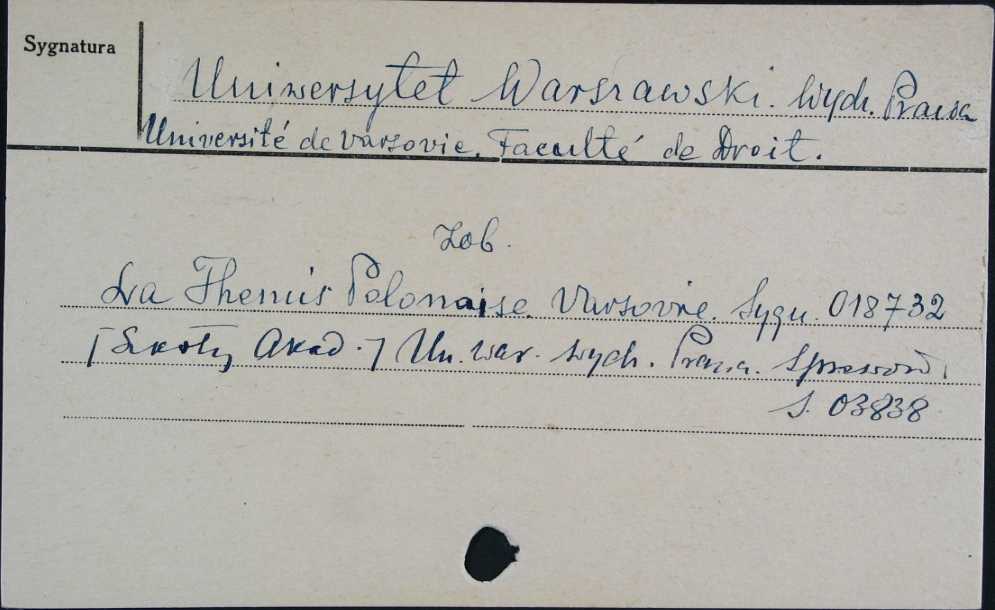 Sygnatura
Uniwersytet Warszawski. Wydz. Prawa
Université de Varsovie. Faculté de Droit.
Zob.
La Themis Polonaise. Varsovie. Sygn. 018732
[Szkoły Akad.] Un. War. Wydz. Prawa. Sprawozd.
S. 03838